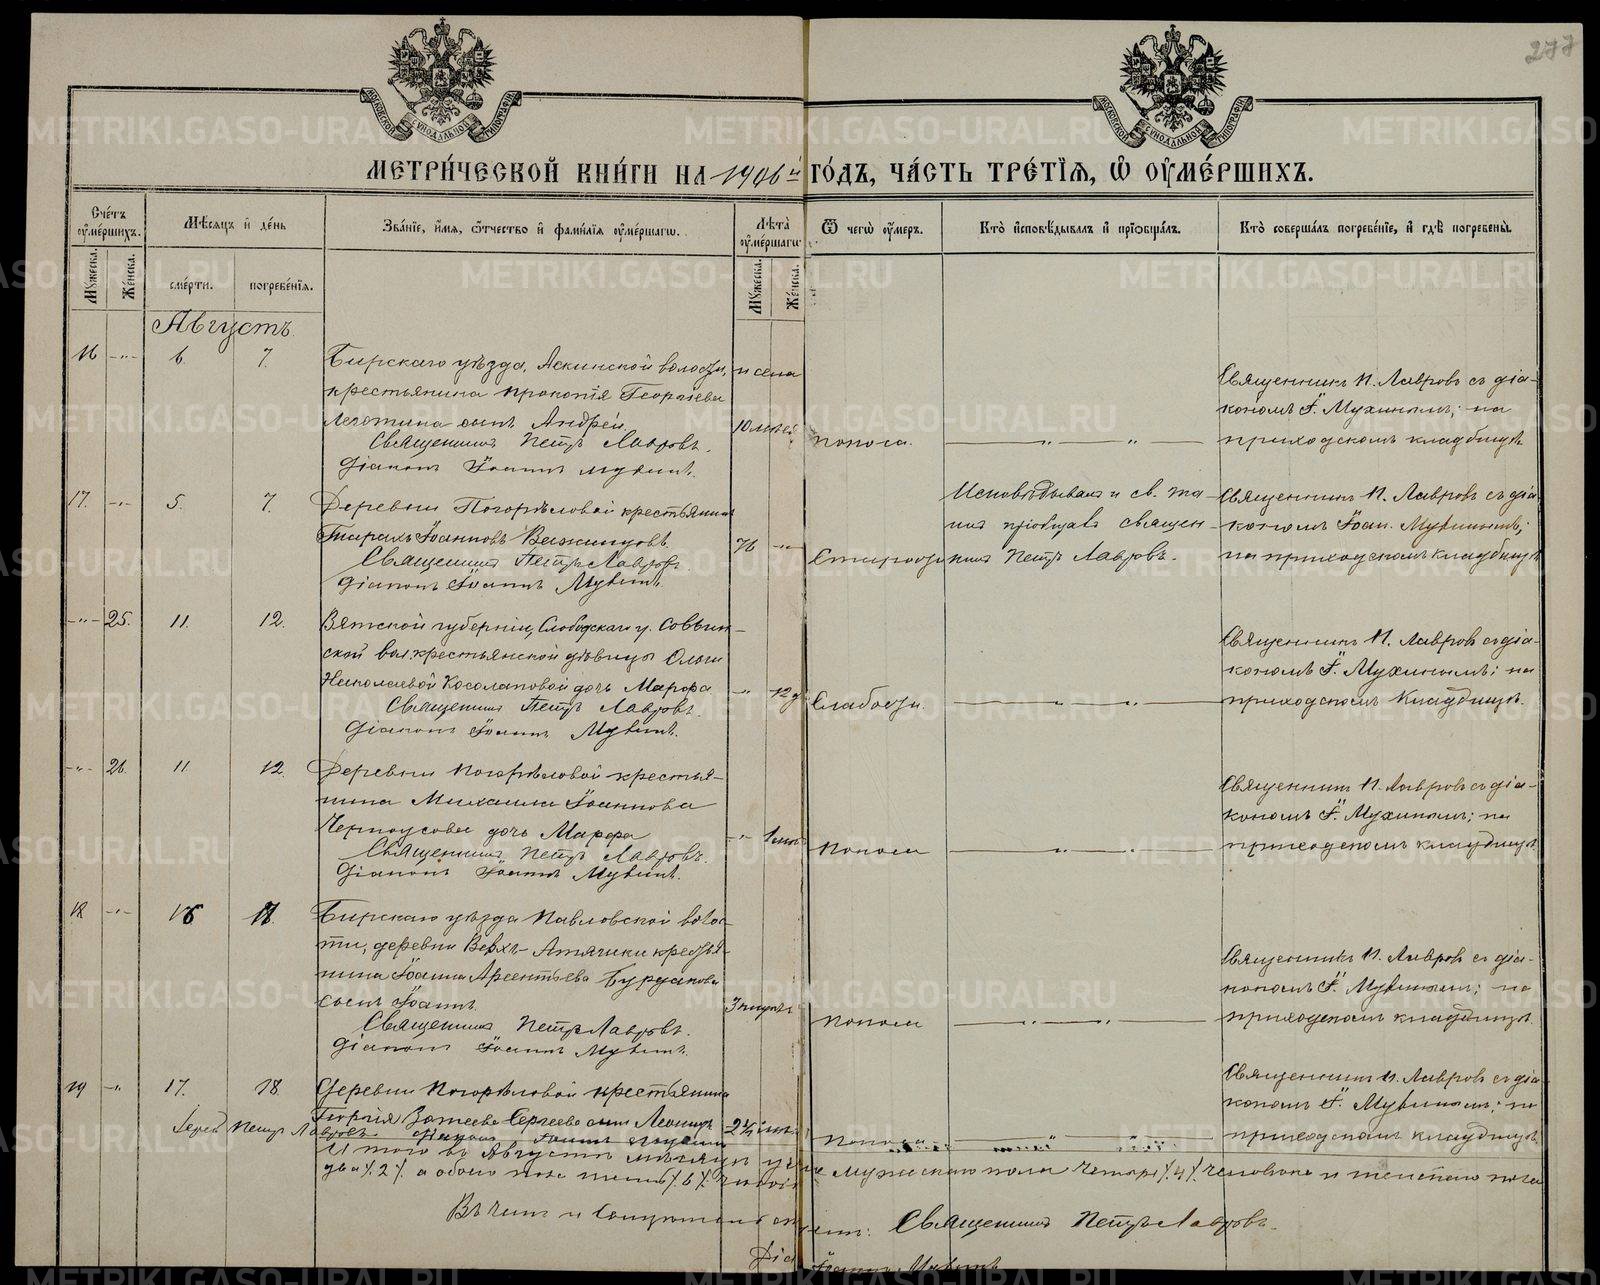 277
МОСКОВСКОЙ СѴНОДАЛЬНОЙ ТИПОГРАФІИ
МОСКОВСКОЙ СѴНОДАЛЬНОЙ ТИПОГРАФІИ
МЕТРИ́ЧЕСКОЙ КНИ́ГИ НА 1906й ГО́ДЪ, ЧА́СТЬ ТРЕ́ТІѦ, Ѡ҆ ОУ҆МЕ́РШИХЪ.
Сче́тъ оу҆ме́ршихъ.
Мѣ́сяцъ и҆ де́нь
Зва́нїе, и҆́мѧ, ѻ҆́тчество и҆ фами́лїѧ оу҆ме́ршагѡ.
Лѣ́та оу҆ме́ршагѡ
Ѿ чегѡ̀ оу҆́меръ.
Кто̀ и҆сповѣ́дывалъ и҆ прїѡбща́лъ.
Кто̀ соверша́лъ погребе́нїе, и҆ гдѣ̀ погребены̀.
Му́жеска.
Же́нска.
сме́рти.
погребе́нїѧ.
Му́жеска.
Же́нска.
Августъ
16 -"- 6. 7. Бирскаго уѣзда, Аскинской волости,
крестьянина Прокопія Георгіева
сынъ Андрей. 10 поноса. — " — " —
Священникъ Петръ Лавровъ.
Діаконъ Іоаннъ Мухинъ.
Священникъ П. Лавровъ съ діа-
кономъ І. Мухинымъ; на
приходскомъ кладбищѣ.
17. -"- 5. 7. Деревни Погорѣловой крестьянинъ
Тарахъ Іоанновъ 76 -"-
Священникъ Петръ Лавровъ.
Діаконъ Іоаннъ Мухинъ.
Исповѣдывалъ и св. та-
инъ пріобщалъ священ-
никъ Петръ Лавровъ.
Священникъ П. Лавровъ съ діа-
кономъ Іоан. Мухинымъ;
на приходскомъ кладбищѣ
-"- 25. 11. 12. Вятской губерніи, Слободскаго у.
ской вол. крестьянской дѣвицы Ольги
Николаевой Косолаповой дочь Марфа -"- 12 Слабости. — " — " —
Священникъ Петръ Лавровъ.
Діаконъ Іоаннъ Мухинъ.
Священникъ П. Лавровъ съ діа-
кономъ І. Мухинымъ; на
приходскомъ кладбищѣ.
-"- 26. 11. 12. Деревни Погорѣловой крестья-
нина Михаила Іоаннова
Черноусова дочь Марфа -"- поноса — " — " —
Священникъ Петръ Лавровъ.
Діаконъ Іоаннъ Мухинъ.
Священникъ П. Лавровъ съ діа-
кономъ І. Мухинымъ; на
приходскомъ кладбищѣ
18 -"- 16 18. Бирскаго уѣзда Павловской волос-
ти, деревни Верхъ-Атячики крестья-
нина Іоанна Арсентьева
сынъ Іоаннъ. поноса — " — " —
Священникъ Петръ Лавровъ.
Діаконъ Іоаннъ Мухинъ.
Священникъ П. Лавровъ съ діа-
кономъ І. Мухинымъ; на
приходскомъ кладбищѣ.
19 -"- 17. 18. Деревни Погорѣловой крестьянина
Георгія Сергеева сынъ Леонидъ поноса — " — " —
Іерей Петръ Лавровъ Діаконъ Іоаннъ Мухинъ
Священникъ П. Лавровъ съ діа
кономъ І. Мухинымъ; на
приходскомъ кладбищѣ
Итого въ Августѣ мѣсяцѣ мужескаго пола четыре /.4/. человѣка и женскаго пола
два /.2/. а обоего пола шесть /.6/.
Священникъ Петръ Лавровъ.
Іоаннъ Мухинъ
METRIKI.GASO-URAL.RU